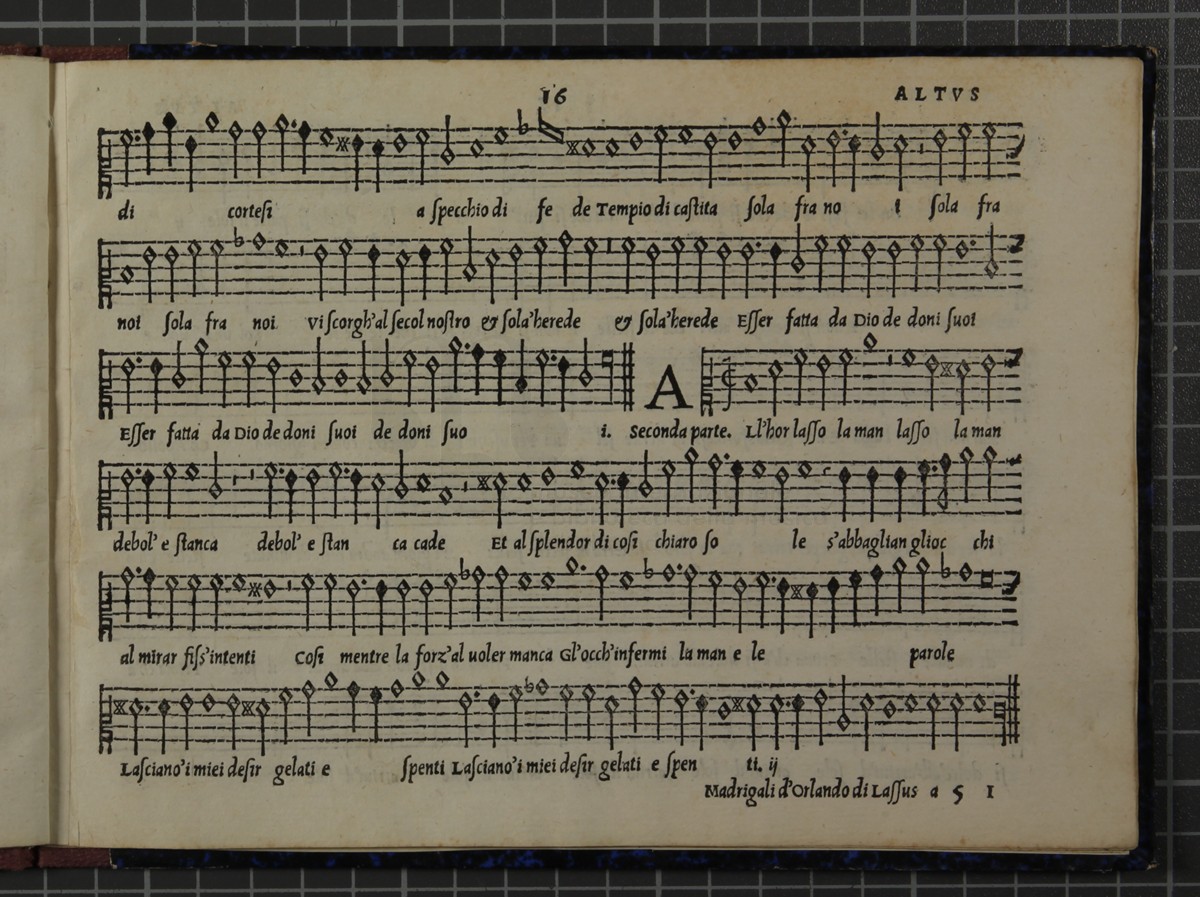 16
ALTVS
di cortesi a ſpecchio di fe de Tempio di caſtita ſola fra no i ſola fra
noi ſola fra noi Vi ſcorgh'al ſecol noſtro & ſola'herede & ſola'herede Eſſer fatta da Dio de doni ſuoi
Eſſer fatta da Dio de doni ſuoi de doni ſuo i. Seconda parte. ALl'hor laſſo la man laſſo la man
debol' e ſtanca debol' e ſtan ca cade Et al ſplendor di coſi chiaro ſo le s'abbaglian glioc chi
al mirar fiſs'intenti Coſi mentre la forz'al uoler manca Gl'occh'infermi la man e le parole
Laſciano'i miei deſir gelati e ſpenti Laſciano'i miei deſir gelati e ſpen ti. ij
Madrigali d'Orlando di Laſſus a 5 I